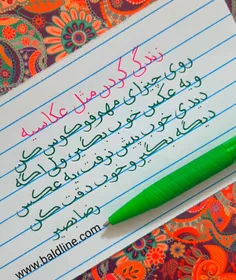 زندگی کردن مثل عکاسیه
روی چیزای مهم فوکوس کن
و یه عکس خوب بگیر ولی اگه
دیدی خوب نشد نرفت یه عکس
دیگه بگیر و خوب دقت کن
رضا بصیر
www.baldline.com